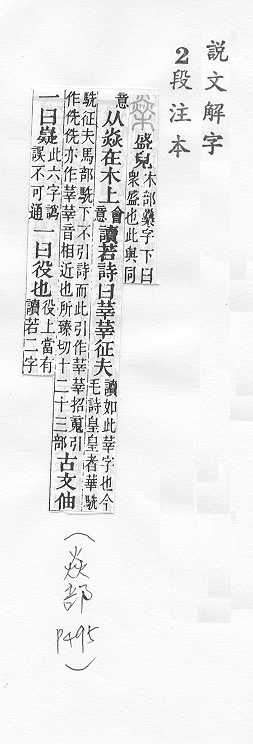 説文解字
2段注本
盛皃
木部字下曰
衆盛也此與同
意
从焱在木上
會
意
讀若詩曰莘莘征夫
讀如此莘字也今
毛詩皇皇者華駪
駪征夫馬部駪下不引詩而此引作莘莘招䰟引
作侁侁亦作莘莘音相近也所臻切十二十三部
古文伷
一曰嶷
此六字譌
誤不可通
一曰役也
役上當有
讀若二字
(焱部
P495)